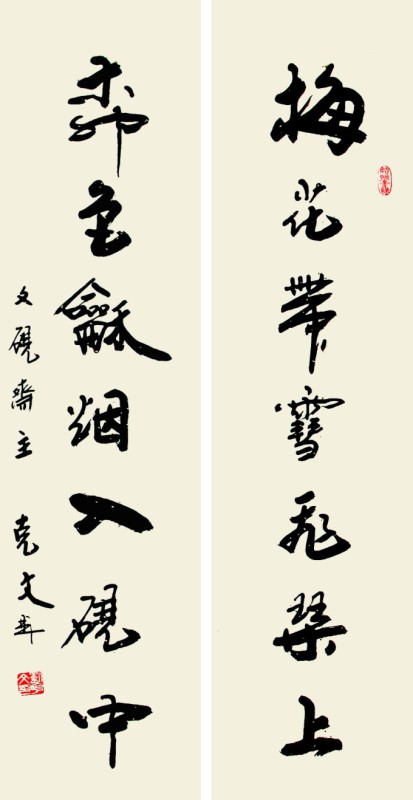 梅花帶雪飛琴上
柳色龢烟入硯中
文硯齋主 克文书